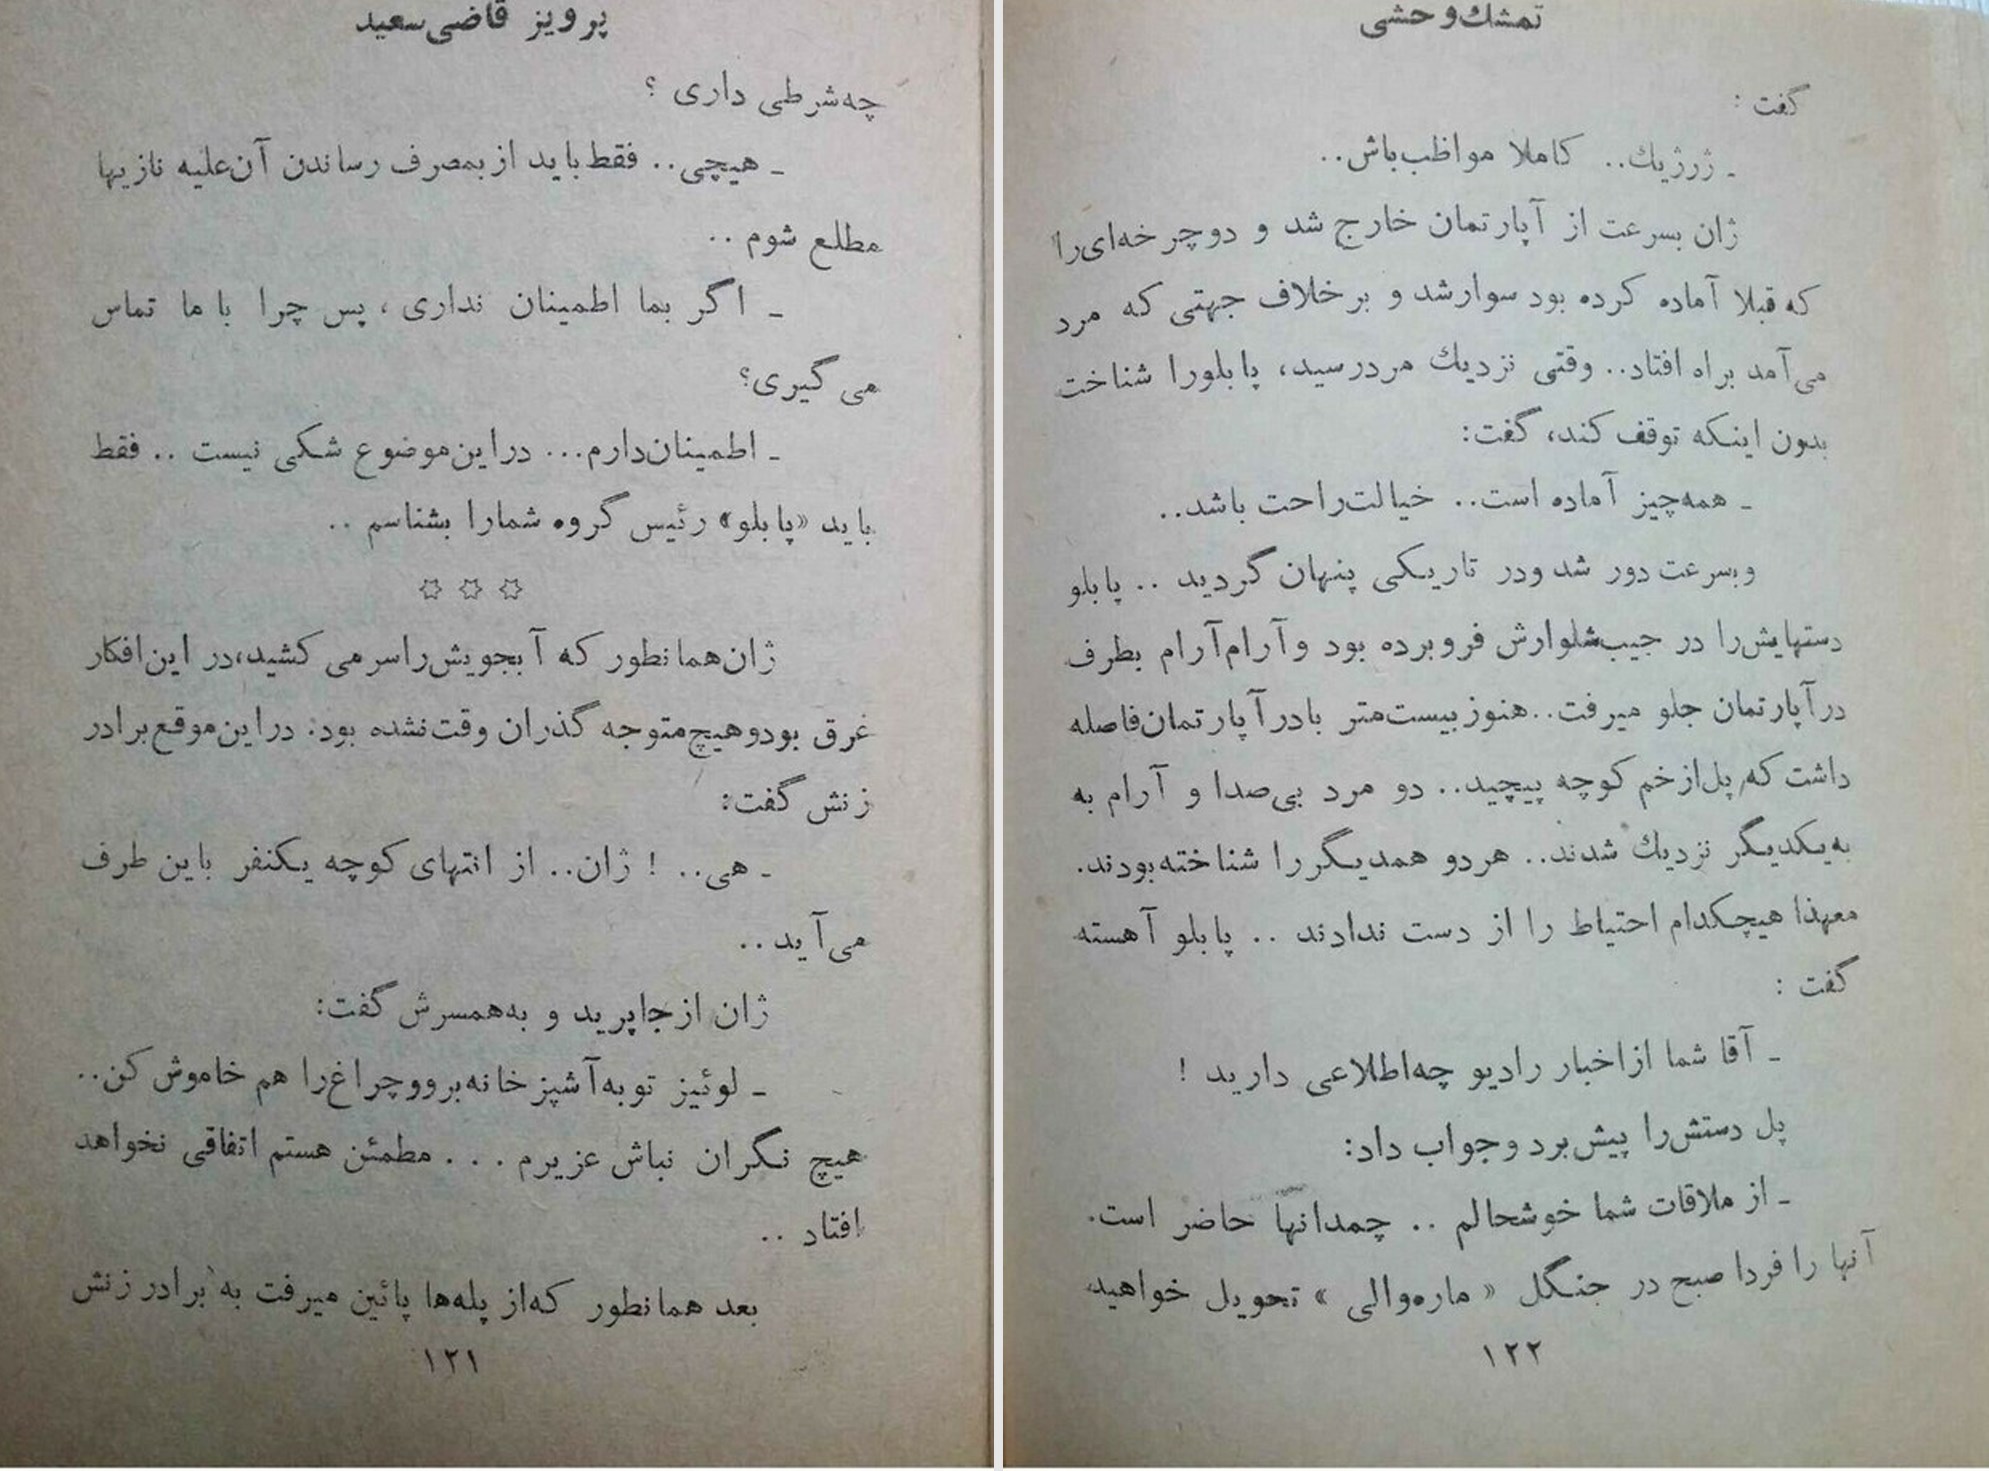 پرویز قاضی‌سعید
چه‌شرطی داری ؟
ـ هیچی.. فقط باید از بمصرف رساندن آن علیه نازیها
مطلع شوم ..
ـ اگر بما اطمینان نداری ، پس چرا با ما تماس
می گیری؟
ـ اطمینان‌دارم... دراین‌موضوع شکی نیست .. فقط
باید «پابلو» رئیس گروه شمارا بشناسم ..
☆ ☆ ☆
ژان‌همانطور که آبجویش‌راسرمی کشید،در این‌افکار
غرق بودوهیچ‌متوجه گذران وقت‌نشده بود. دراین‌موقع‌برادر
زنش گفت:
ـ هی.. ! ژان.. از انتهای کوچه یکنفر باین طرف
می‌آید..
ژان ازجاپرید و به‌همسرش گفت:
ـ لوئیز توبه‌آشپزخانه‌بروو‌چراغ‌را هم خاموش کن..
هیچ نگران نباش عزیزم . . . مطمئن هستم اتفاقی نخواهد
افتاد ..
بعد همانطور که‌از پله‌ها پائین میرفت به برادرزنش
۱۲۱
تمشك‌وحشی
گفت :
ـ ژرژیك.. کاملا مواظب‌باش..
ژان بسرعت از آپارتمان خارج شد و دوچرخه‌ای‌را
که قبلا آماده کرده بود سوارشد و برخلاف جهتی که مرد
می‌آمد براه افتاد.. وقتی نزدیك مردرسید، پابلورا شناخت
بدون اینکه توقف کند، گفت:
ـ همه‌چیز آماده است.. خیالت‌راحت باشد..
وبسرعت دور شد ودر تاریکی پنهان گردید .. پابلو
دستهایش‌را در جیب‌شلوارش فروبرده بود وآرام‌آرام بطرف
درآپارتمان جلو میرفت..هنوزبیست‌متر بادرآپارتمان‌فاصله
داشت که‌پل‌ازخم کوچه پیچید.. دو مرد بی‌صدا و آرام به
به‌یکدیگر نزدیك شدند.. هردو همدیگررا شناخته‌بودند.
معهذا هیچکدام احتیاط را از دست ندادند .. پابلو آهسته
گفت :
ـ آقا شما ازاخبار رادیو چه‌اطلاعی دارید !
پل دستش‌را پیش‌برد وجواب داد:
ـ از ملاقات شما خوشحالم .. چمدانها حاضر است.
آنها را فردا صبح در جنگل « ماره‌والی » تحویل خواهید
۱۲۲